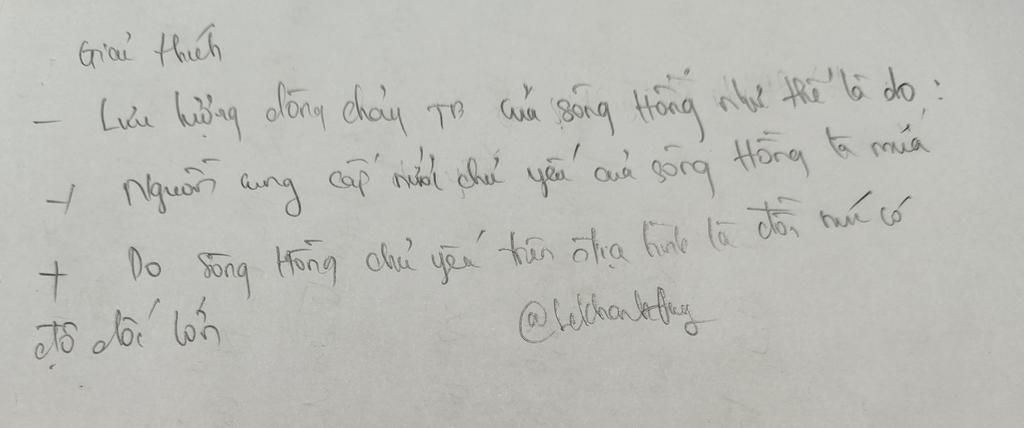 Giải thích
- Lưu lượng dòng chảy TB của sông Hồng như thế là do :
+ Nguồn cung cấp nước chủ yếu của sông Hồng là mưa
+ Do sông Hồng chủ yếu trên địa hình là đồi núi có
độ dốc lớn